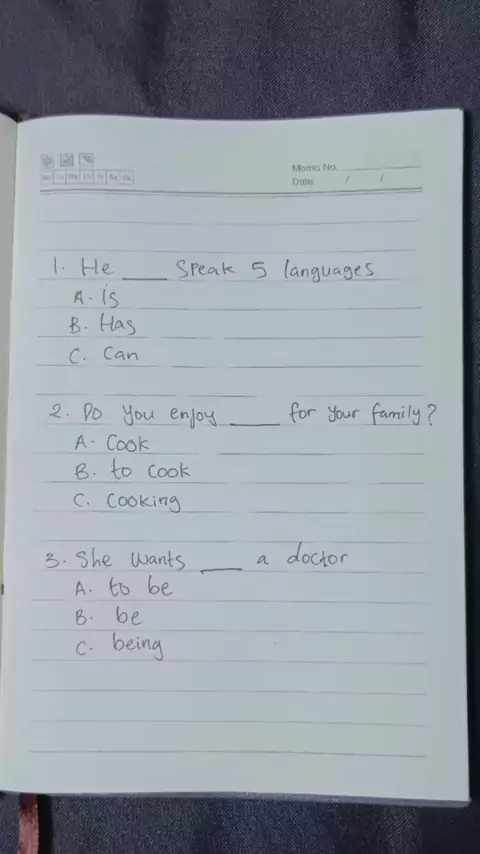 Memo No.
Date / /
1. He ___ speak 5 languages
A. is
B. Has
C. Can
2. Do you enjoy ___ for your family?
A. Cook
B. to cook
C. cooking
3. She wants ___ a doctor
A. to be
B. be
C. being